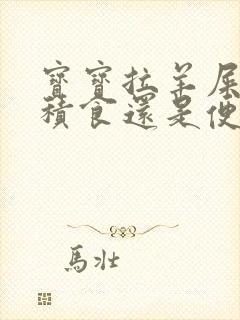 寶寶拉羊屎
積食還是便
馬壯